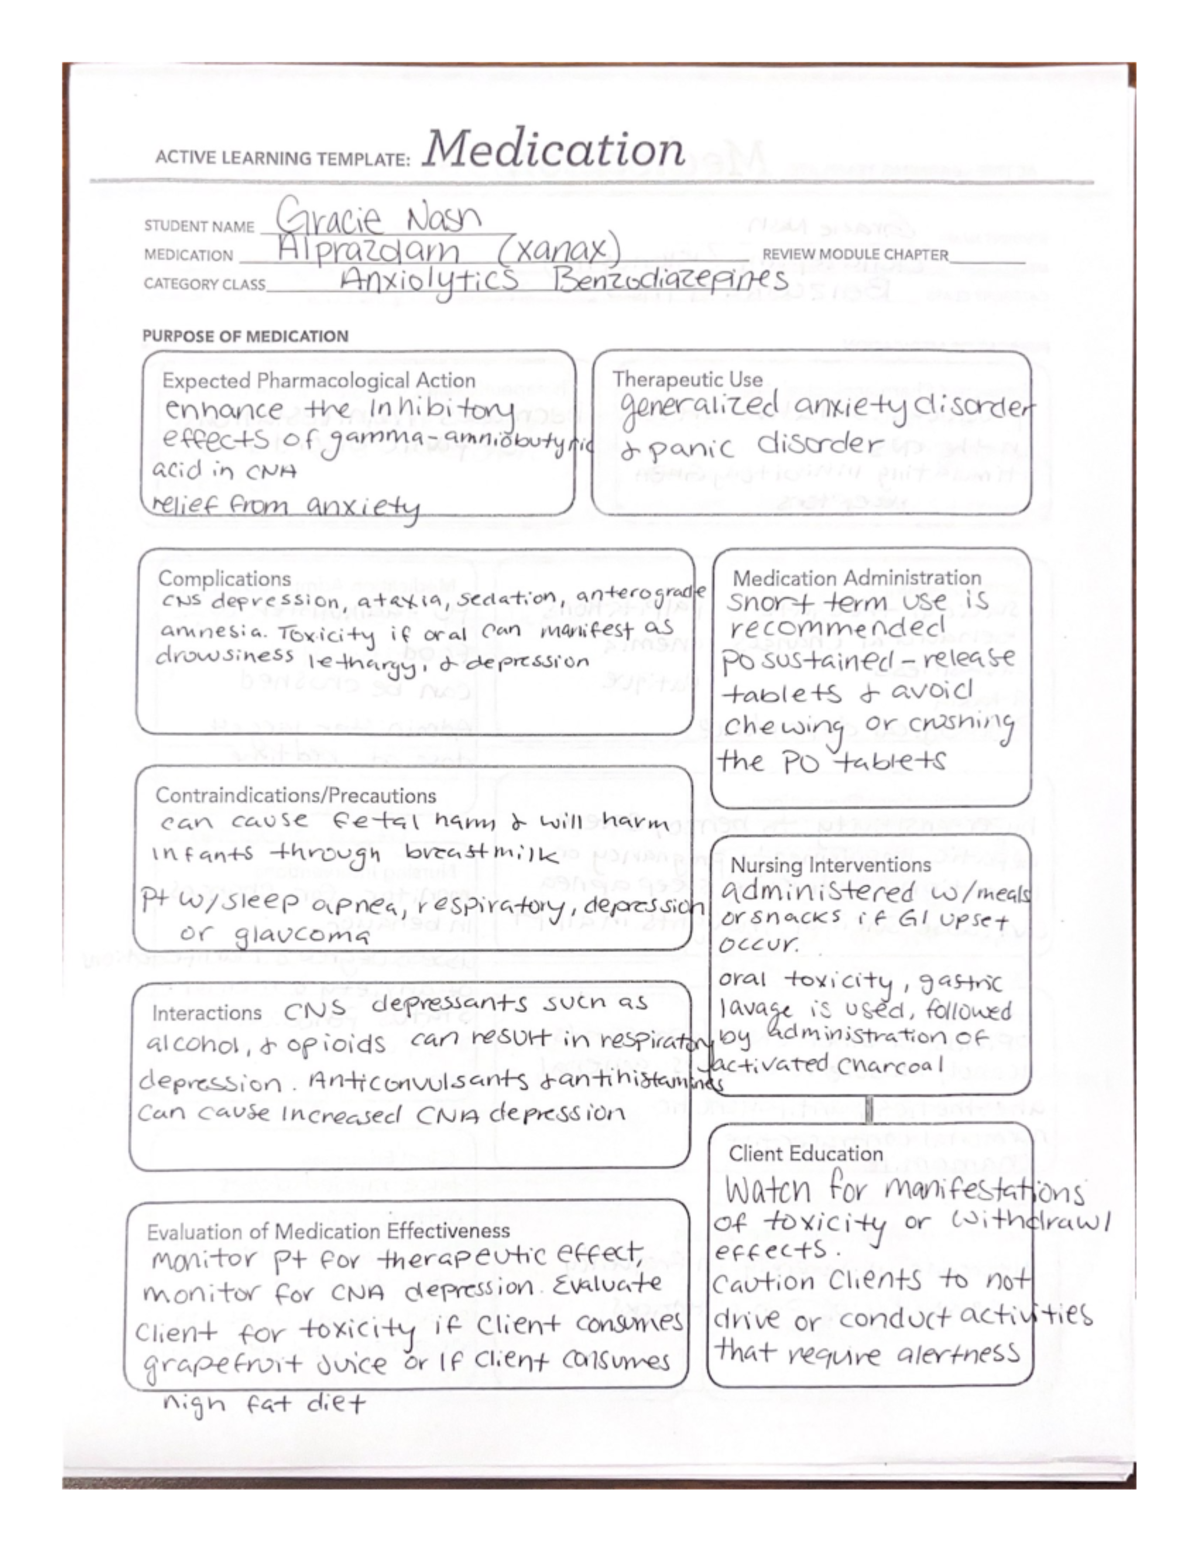 ACTIVE LEARNING TEMPLATE: Medication
STUDENT NAME Gracie Nash
MEDICATION Alprazolam (xanax) REVIEW MODULE CHAPTER
CATEGORY CLASS Anxiolytics Benzodiazepines
PURPOSE OF MEDICATION
Expected Pharmacological Action
enhance the Inhibitory
effects of gamma-amniobutyric
acid in CNA
relief from anxiety
Therapeutic Use
generalized anxiety disorder
& panic disorder
Complications
CNS depression, ataxia, sedation, anterograde
amnesia. Toxicity if oral can manifest as
drowsiness lethargy, & depression
Medication Administration
Short term use is
recommended
PO sustained-release
tablets & avoid
chewing or crushing
the PO tablets
Contraindications/Precautions
can cause fetal harm & will harm
infants through breastmilk
Pt w/sleep apnea, respiratory, depression
or glaucoma
Nursing Interventions
administered w/meals
or snacks if GI upset
occur.
oral toxicity, gastric
lavage is used, followed
by administration of
activated charcoal
Interactions CNS depressants such as
alcohol, & opioids can result in respiratory
depression. Anticonvulsants & antihistamines
can cause increased CNA depression
Client Education
Watch for manifestations
of toxicity or withdrawl
effects.
Caution Clients to not
drive or conduct activities
that require alertness
Evaluation of Medication Effectiveness
monitor pt for therapeutic effect,
monitor for CNA depression. Evaluate
Client for toxicity if client consumes
grapefruit Juice or If client consumes
high fat diet